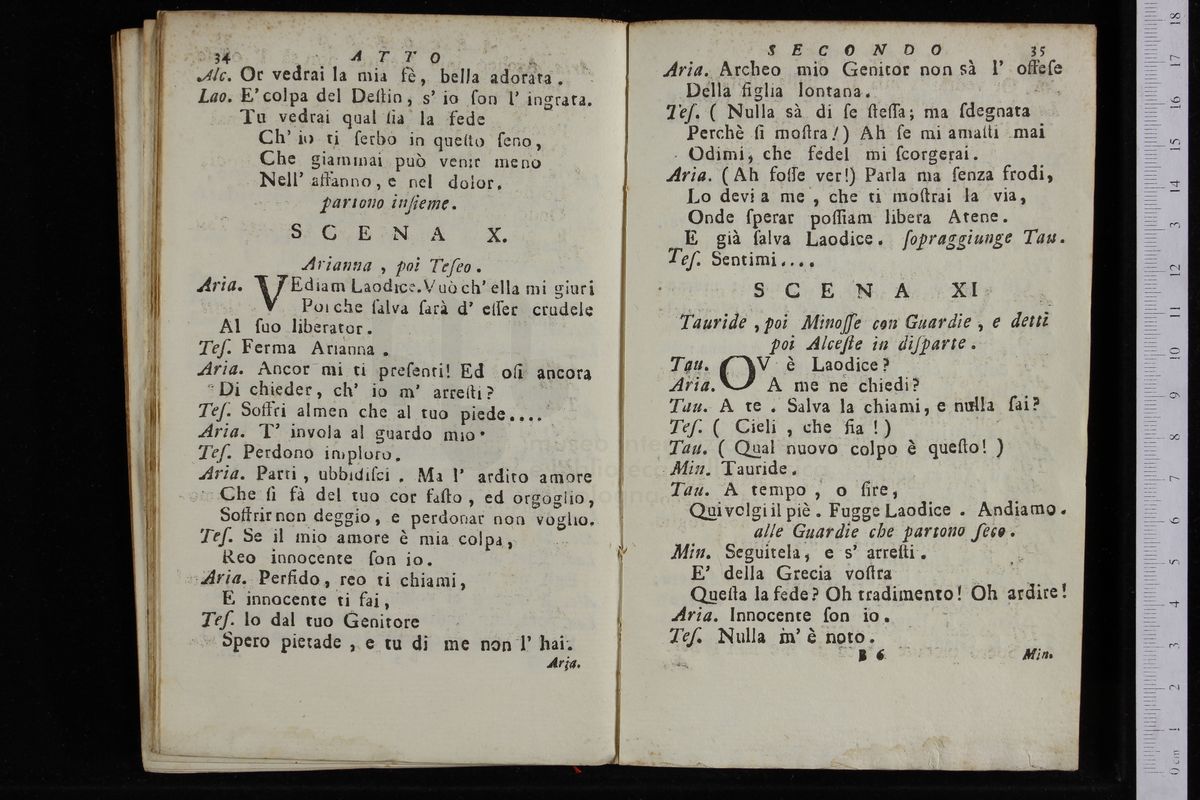 34 ATTO
Alc. Or vedrai la mia fè, bella adorata.
Lao. E' colpa del Deſtin, s' io ſon l' ingrata.
Tu vedrai qual ſia la fede
Ch' io ti ſerbo in queſto ſeno,
Che giammai può venir meno
Nell' affanno, e nel dolor.
partono inſieme.
SCENA X.
Arianna, poi Teſeo.
Aria. VEdiam Laodice. Vuò ch' ella mi giuri
Poi che ſalva ſarà d' eſſer crudele
Al ſuo liberator.
Teſ. Ferma Arianna.
Aria. Ancor mi ti preſenti! Ed oſi ancora
Di chieder, ch' io m' arreſti?
Teſ. Soffri almen che al tuo piede....
Aria. T' invola al guardo mio.
Teſ. Perdono imploro.
Aria. Parti, ubbidiſci. Ma l' ardito amore
Che ſi fà del tuo cor faſto, ed orgoglio,
Soffrir non deggio, e perdonar non voglio.
Teſ. Se il mio amore è mia colpa,
Reo innocente ſon io.
Aria. Perfido, reo ti chiami,
E innocente ti fai,
Teſ. Io dal tuo Genitore
Spero pietade, e tu di me non l' hai.
Aria.
SECONDO 35
Aria. Archeo mio Genitor non sà l' offeſe
Della figlia lontana.
Teſ. (Nulla sà di ſe ſteſſa; ma ſdegnata
Perchè ſi moſtra!) Ah ſe mi amaſti mai
Odimi, che fedel mi ſcorgerai.
Aria. (Ah foſſe ver!) Parla ma ſenza frodi,
Lo devi a me, che ti moſtrai la via,
Onde ſperar poſſiam libera Atene.
E già ſalva Laodice. ſopraggiunge Tau.
Teſ. Sentimi....
SCENA XI
Tauride, poi Minoſſe con Guardie, e detti
poi Alceſte in diſparte.
Tau. OV è Laodice?
Aria. A me ne chiedi?
Tau. A te. Salva la chiami, e nulla ſai?
Teſ. (Cieli, che ſia!)
Tau. (Qual nuovo colpo è queſto!)
Min. Tauride.
Tau. A tempo, o ſire,
Qui volgi il piè. Fugge Laodice. Andiamo.
alle Guardie che partono ſeco.
Min. Seguitela, e s' arreſti.
E' della Grecia voſtra
Queſta la fede? Oh tradimento! Oh ardire!
Aria. Innocente ſon io.
Teſ. Nulla m' è noto.
B 6 Min.